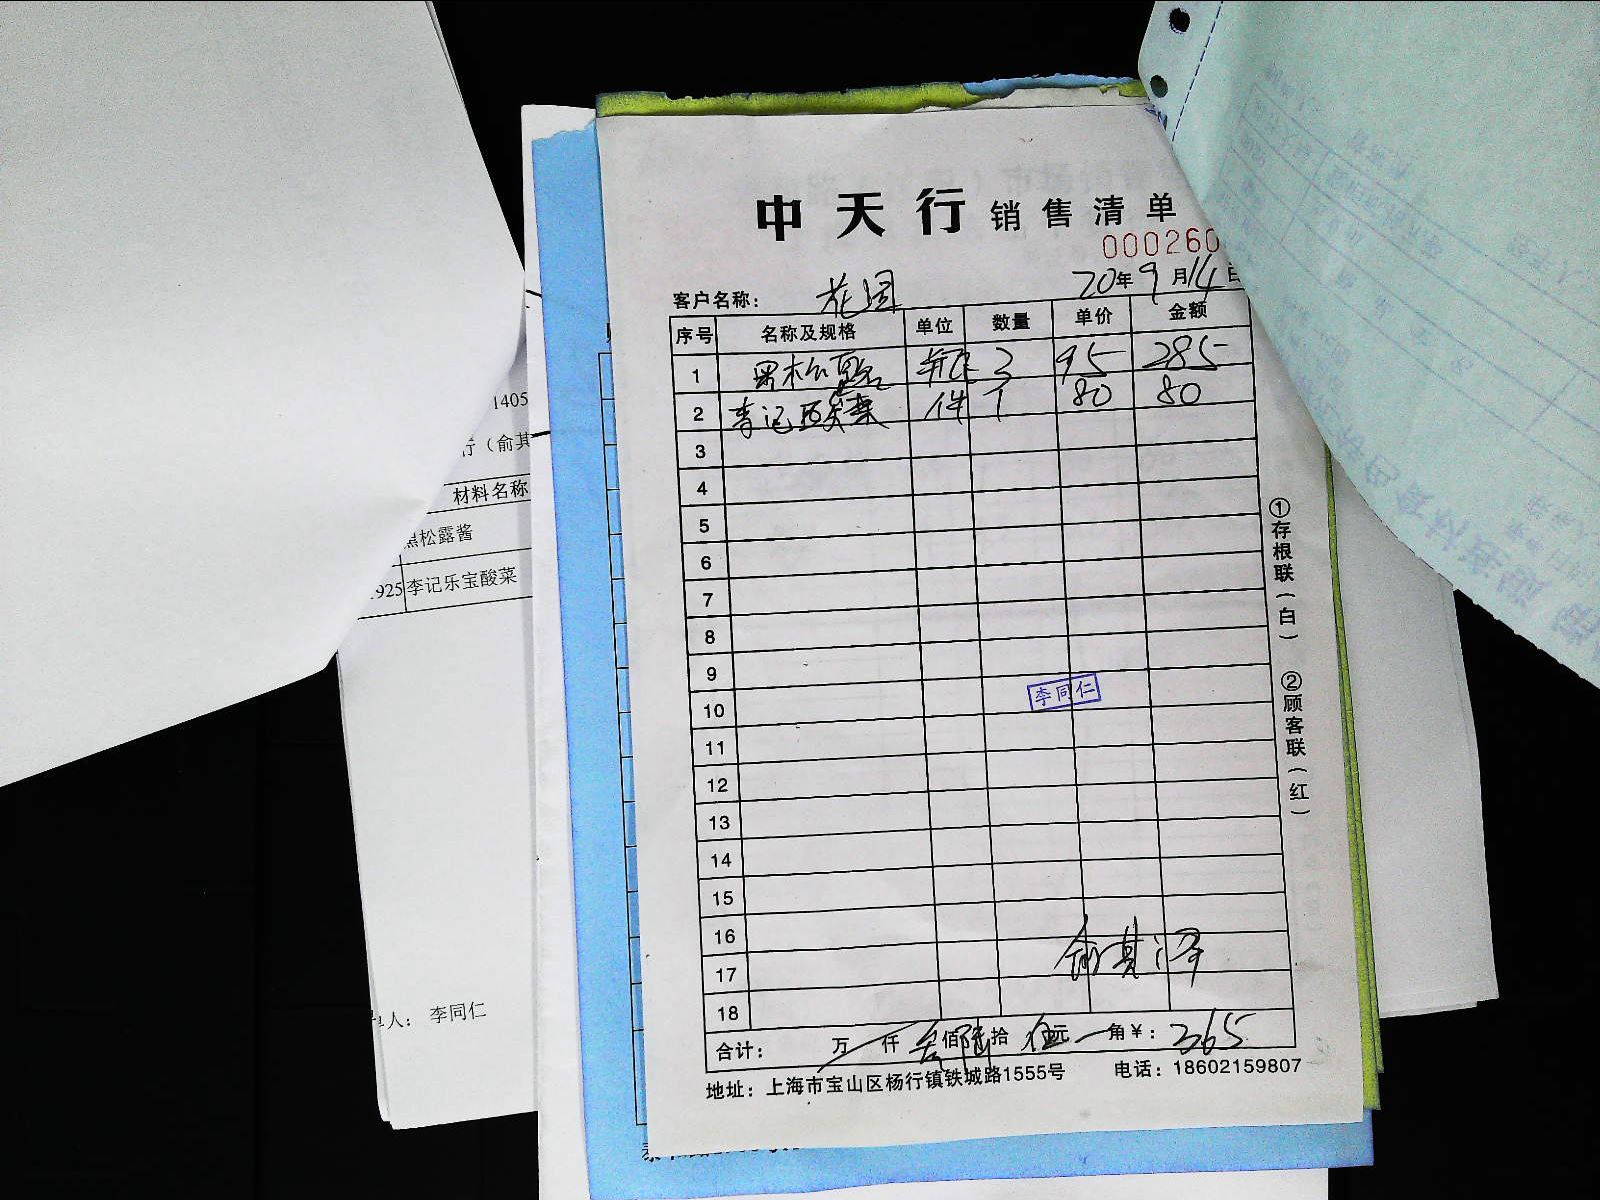 中天行 销售清单
000260
20年9月14日
客户名称： 花园
序号 名称及规格 单位 数量 单价 金额
1 黑松露 瓶 3 95 285
2 李记酸菜 件 1 80 80
3
4
5
6
7
8
9
10
李同仁
11
12
13
14
15
16
俞其泽
17
18
合计： 万 仟 叁佰陆拾伍元 角¥： 365
地址：上海市宝山区杨行镇铁城路1555号 电话：18602159807
①存根联（白） ②顾客联（红）
1405
行（俞其
材料名称
黑松露酱
925 李记乐宝酸菜
单人： 李同仁